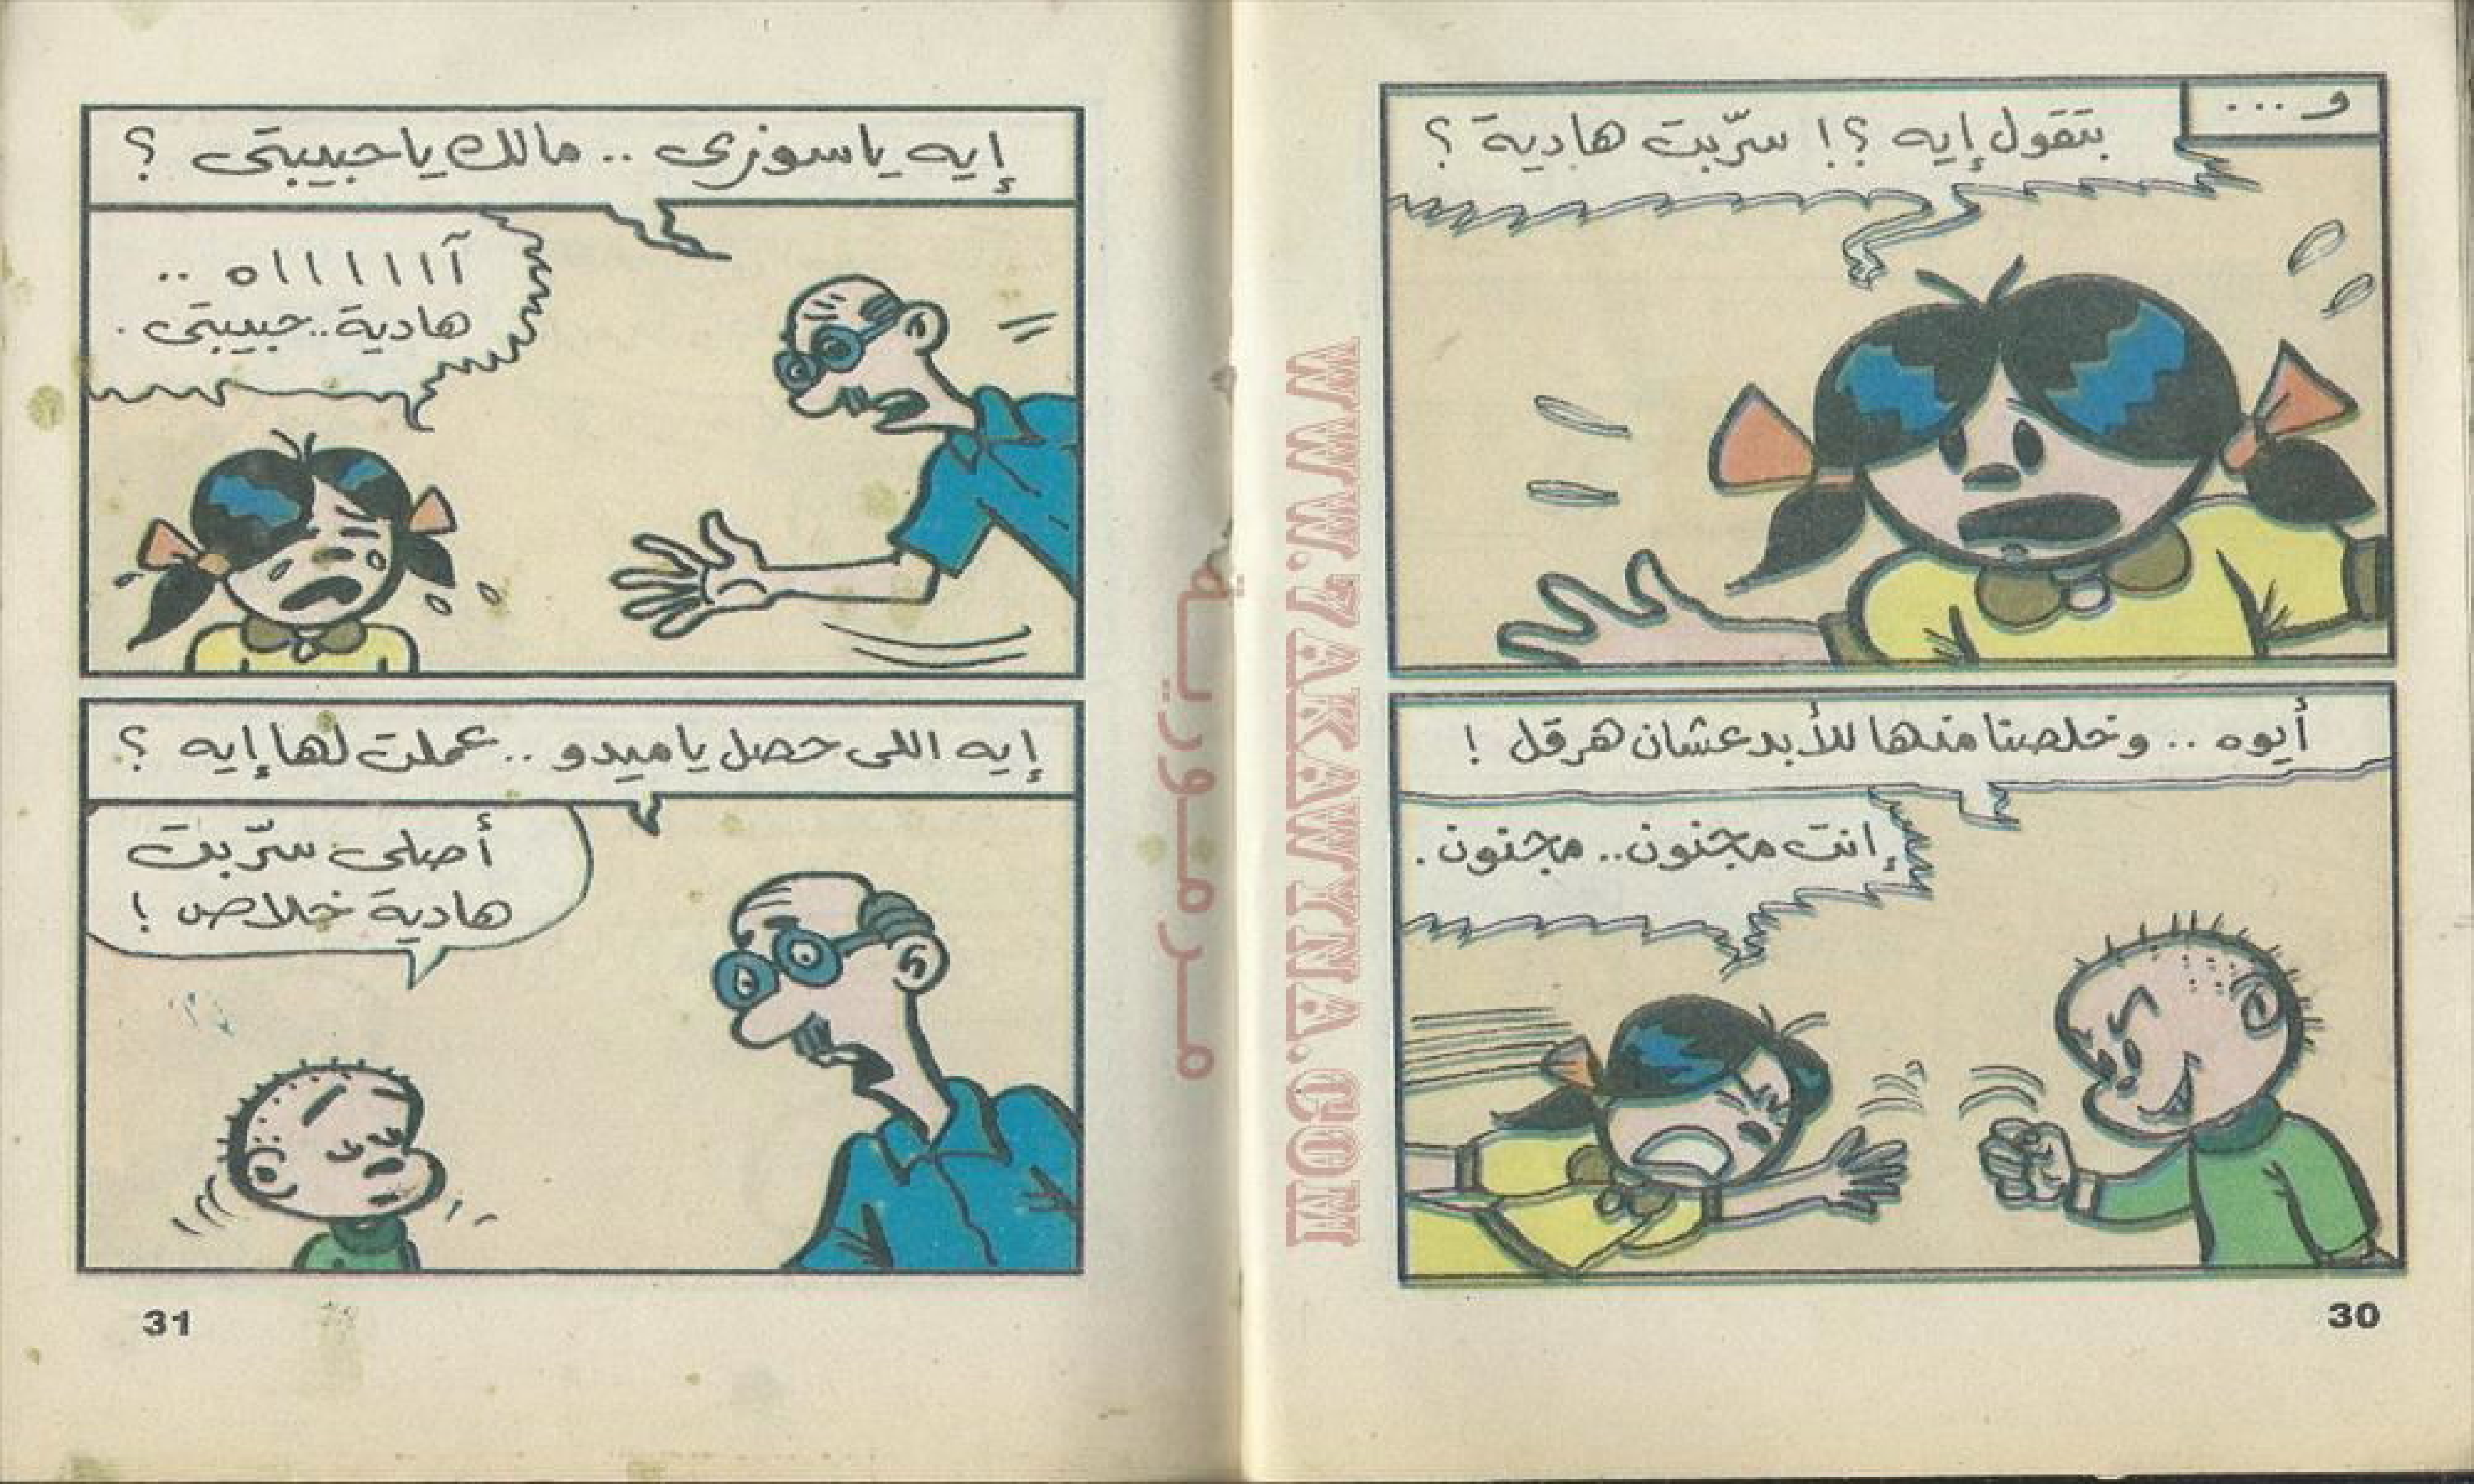 و...
بتقول إيه ؟! سرّبت هادية ؟
أيوه .. وخلصنا منها للأبد عشان هرقل !
إنت مجنون.. مجنون.
30
WWW.7AKAWYNA.COM
مرمورية
إيه ياسوزى .. مالك ياحبيبتى ؟
آاااااااه ..
هادية..حبيبتى .
إيه اللى حصل ياميدو ..عملت لها إيه ؟
أصلى سرّبت
هادية خلاص !
31